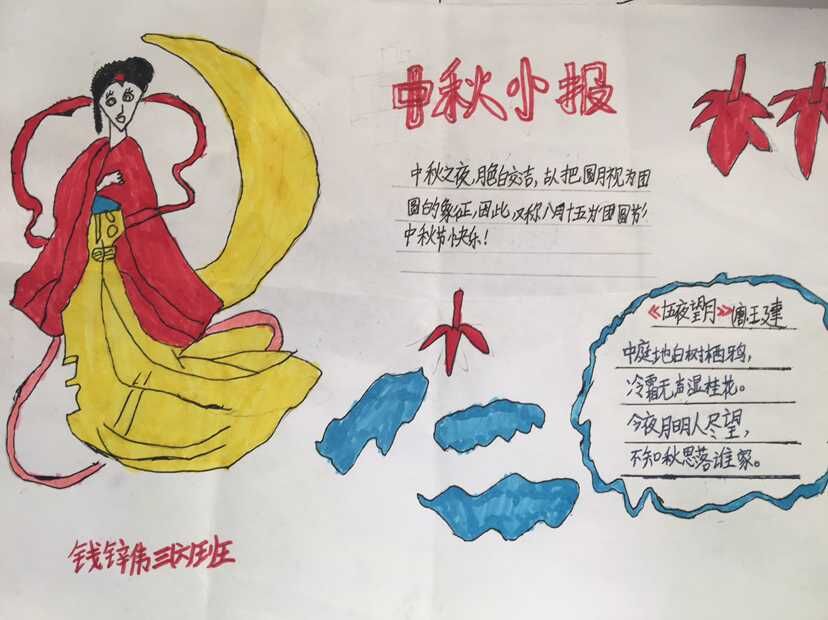 中秋小报
中秋之夜,月色皎洁,古人把圆月视为团
圆的象征,因此,又称八月十五为"团圆节"
中秋节快乐!
《十五夜望月》唐王建
中庭地白树栖鸦,
冷霜无声湿桂花。
今夜月明人尽望,
不知秋思落谁家。
钱锌伟三六班